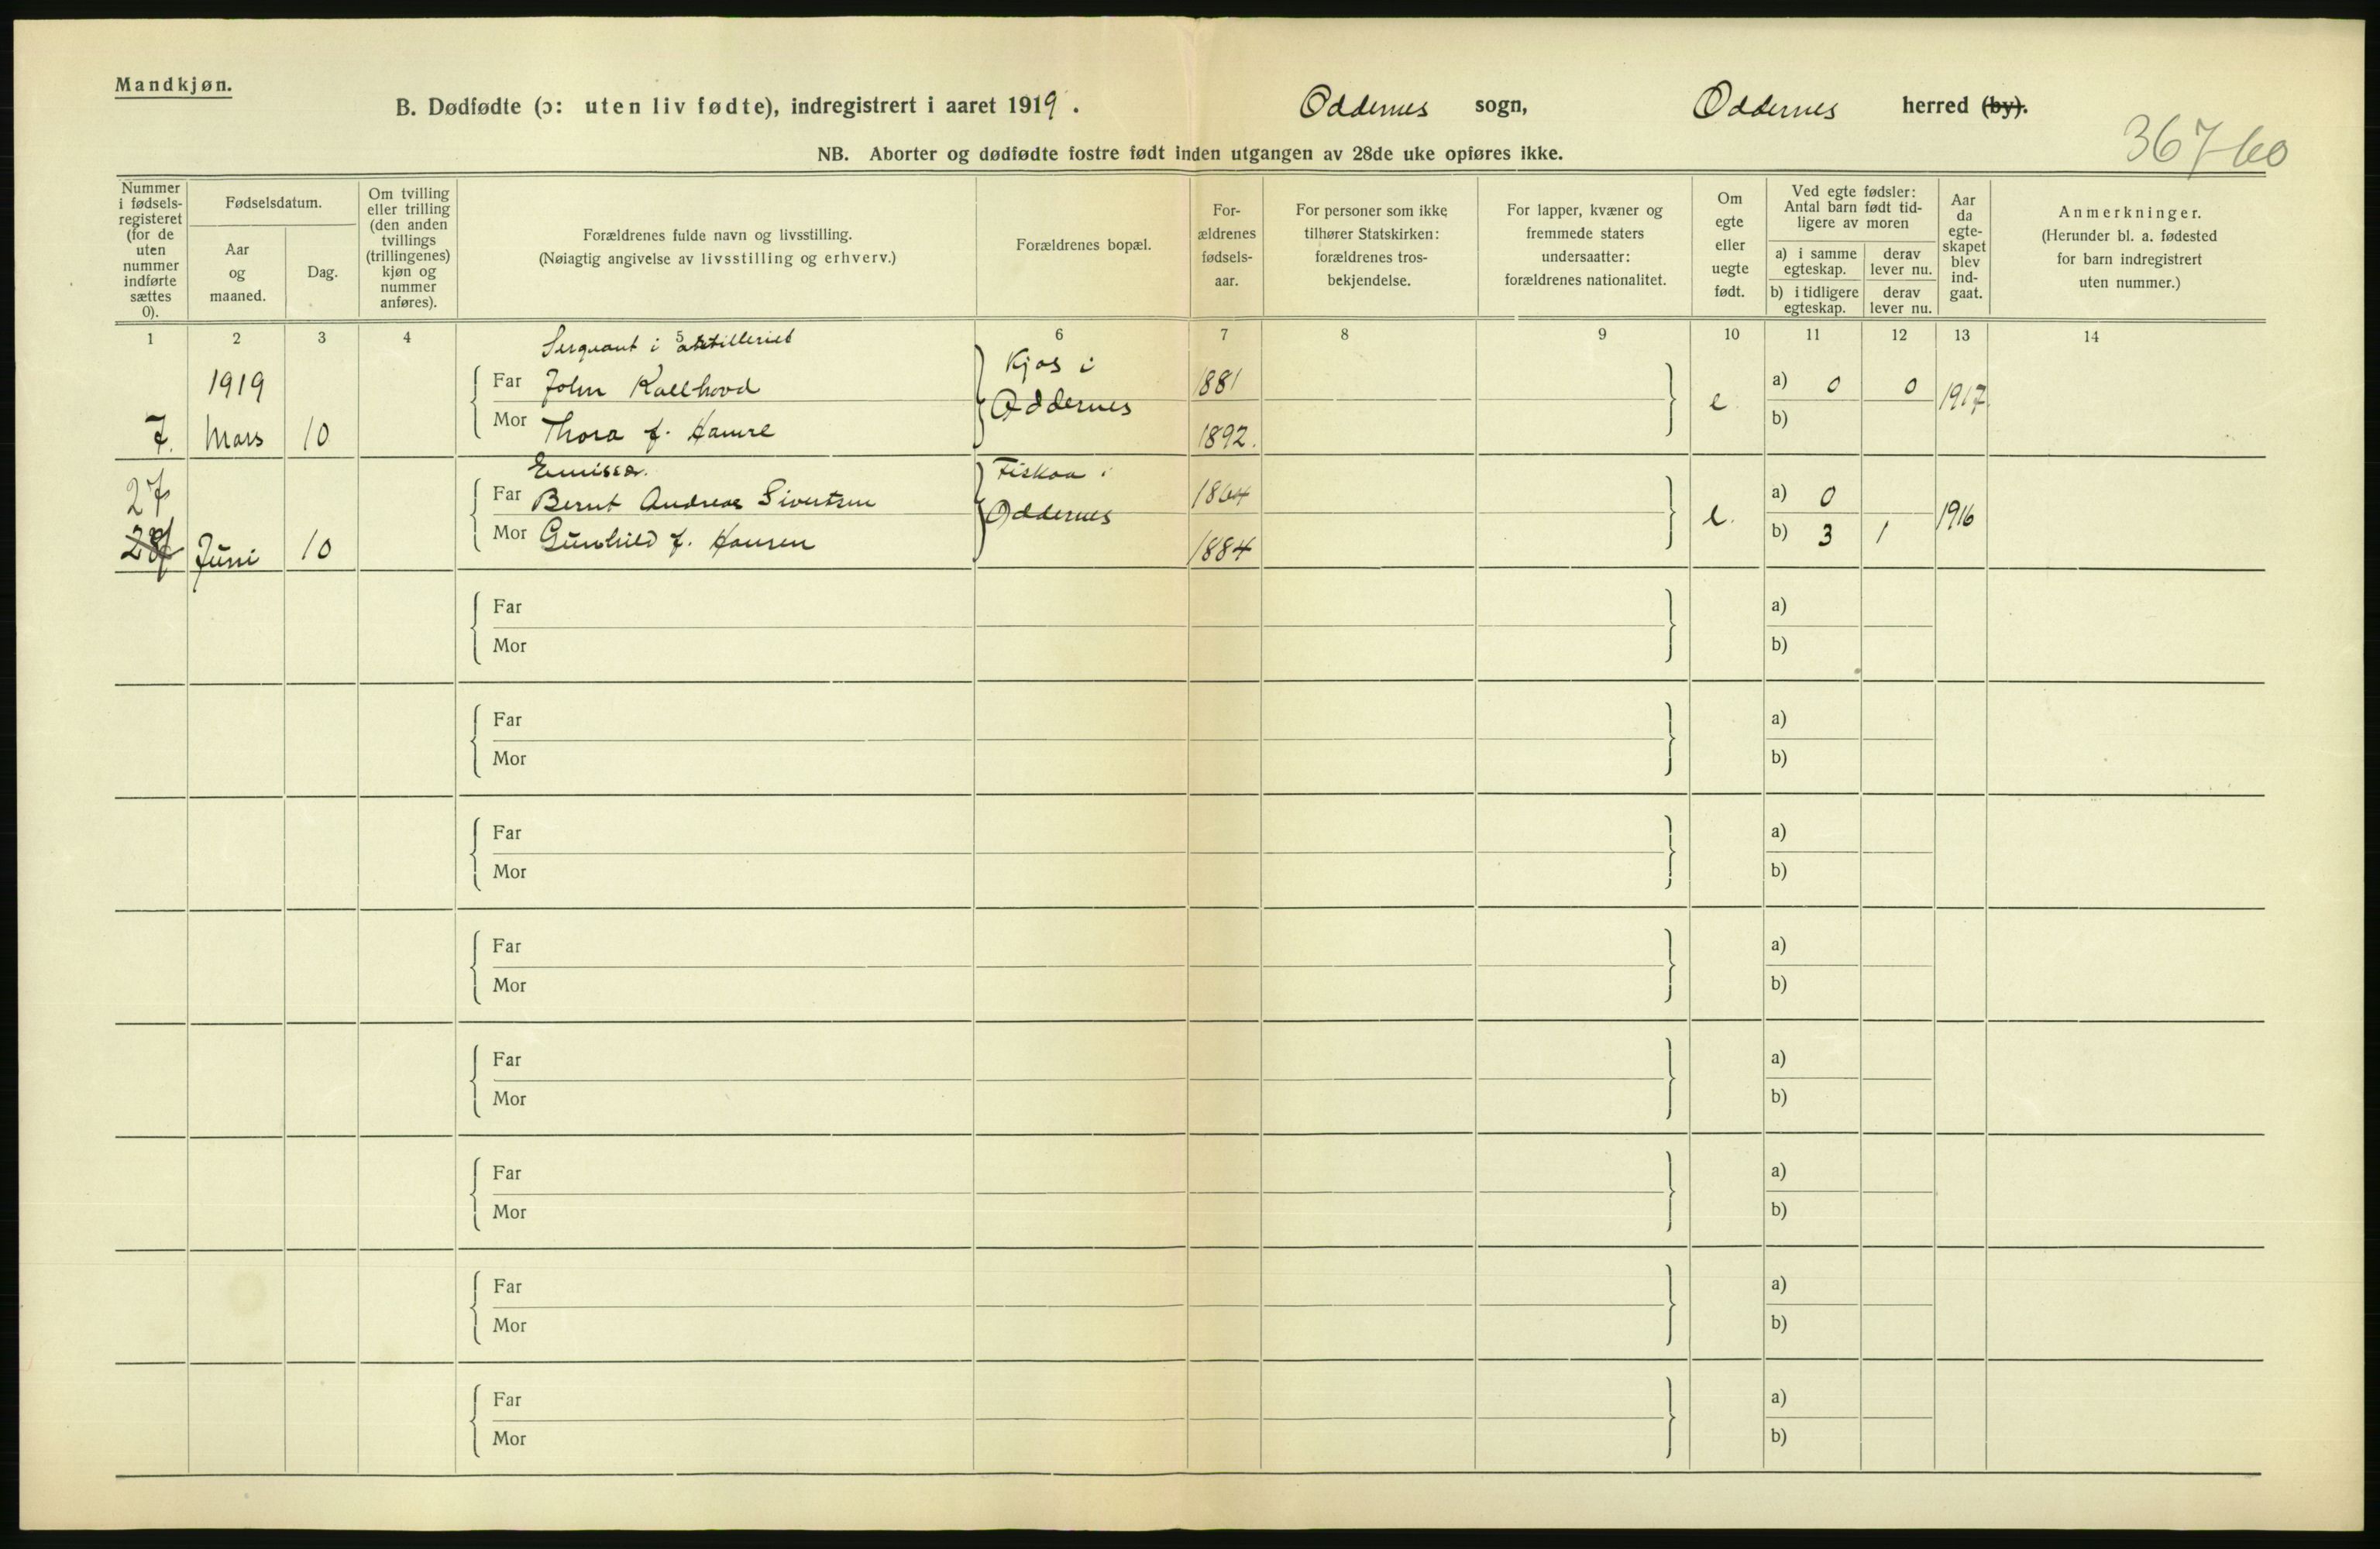 Mandkjøn.
B. Dødfødte (ɔ: uten liv fødte), indregistrert i aaret 1919. Oddernes sogn, Oddernes herred (by).
36760
NB. Aborter og dødfødte fostre født inden utgangen av 28de uke opføres ikke.
Nummer i fødsels- registeret (for de uten nummer indførte sættes 0).
Fødselsdatum.
Aar og maaned.
Dag.
Om tvilling eller trilling (den anden tvillings (trillingenes) kjøn og nummer anføres).
Forældrenes fulde navn og livsstilling.
(Nøiagtig angivelse av livsstilling og erhverv.)
Forældrenes bopæl.
For- ældrenes fødsels- aar.
For personer som ikke tilhører Statskirken: forældrenes tros- bekjendelse.
For lapper, kvæner og fremmede staters undersaatter: forældrenes nationalitet.
Om egte eller uegte født.
Ved egte fødsler: Antal barn født tid- ligere av moren
a) i samme egteskap.
derav lever nu.
b) i tidligere egteskap.
derav lever nu.
Aar da egte- skapet blev ind- gaat.
Anmerkninger.
(Herunder bl. a. fødested for barn indregistrert uten nummer.)
1 2 3 4 5 6 7 8 9 10 11 12 13 14
Sergeant i artilleriet
1919 Far John Kallhovd Kjos i 1881 a) 0 0
7. Mars 10 Mor Thora f. Hamre Oddernes 1892. e b) 1917
Emissær.
27 Far Bernt Andreas Sivertsen Fiskaa i 1864 a) 0
28 Juni 10 Mor Gunhild f. Hansen Oddernes 1884 e. b) 3 1 1916
Far a)
Mor b)
Far a)
Mor b)
Far a)
Mor b)
Far a)
Mor b)
Far a)
Mor b)
Far a)
Mor b)
Far a)
Mor b)
Far a)
Mor b)